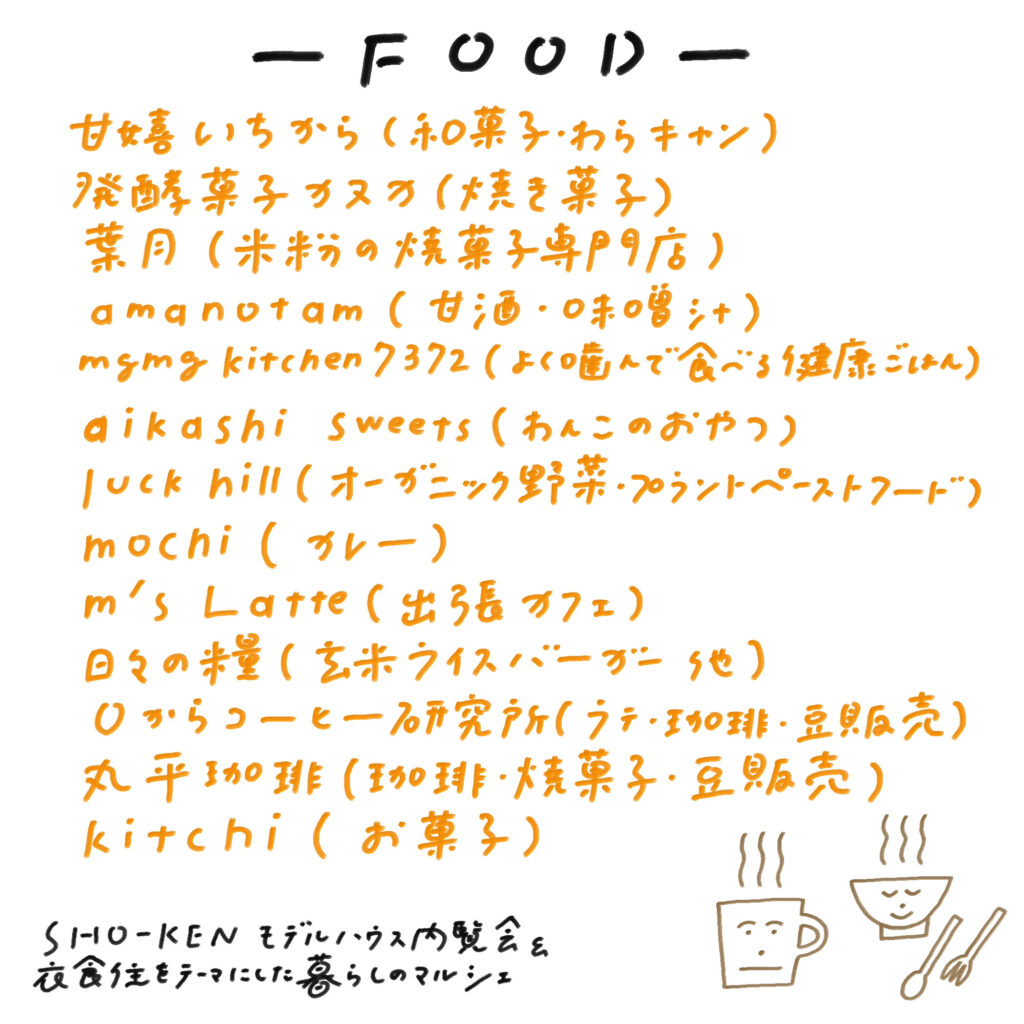 — FOOD —
甘嬉いちから(和菓子・わらキャン)
発酵菓子カヌカ(焼き菓子)
葉月(米粉の焼菓子専門店)
amanotam(甘酒・味噌汁)
mgmg kitchen7372(よく噛んで食べる健康ごはん)
aikashi sweets(わんこのおやつ)
luck hill(オーガニック野菜・プラントベーストフード)
mochi(カレー)
m's Latte(出張カフェ)
日々の糧(玄米ライスバーガー他)
0からコーヒー研究所(ラテ・珈琲・豆販売)
丸平珈琲(珈琲・焼菓子・豆販売)
kitchi(お菓子)
SHO-KENモデルハウス内覧会&
衣食住をテーマにした暮らしのマルシェ